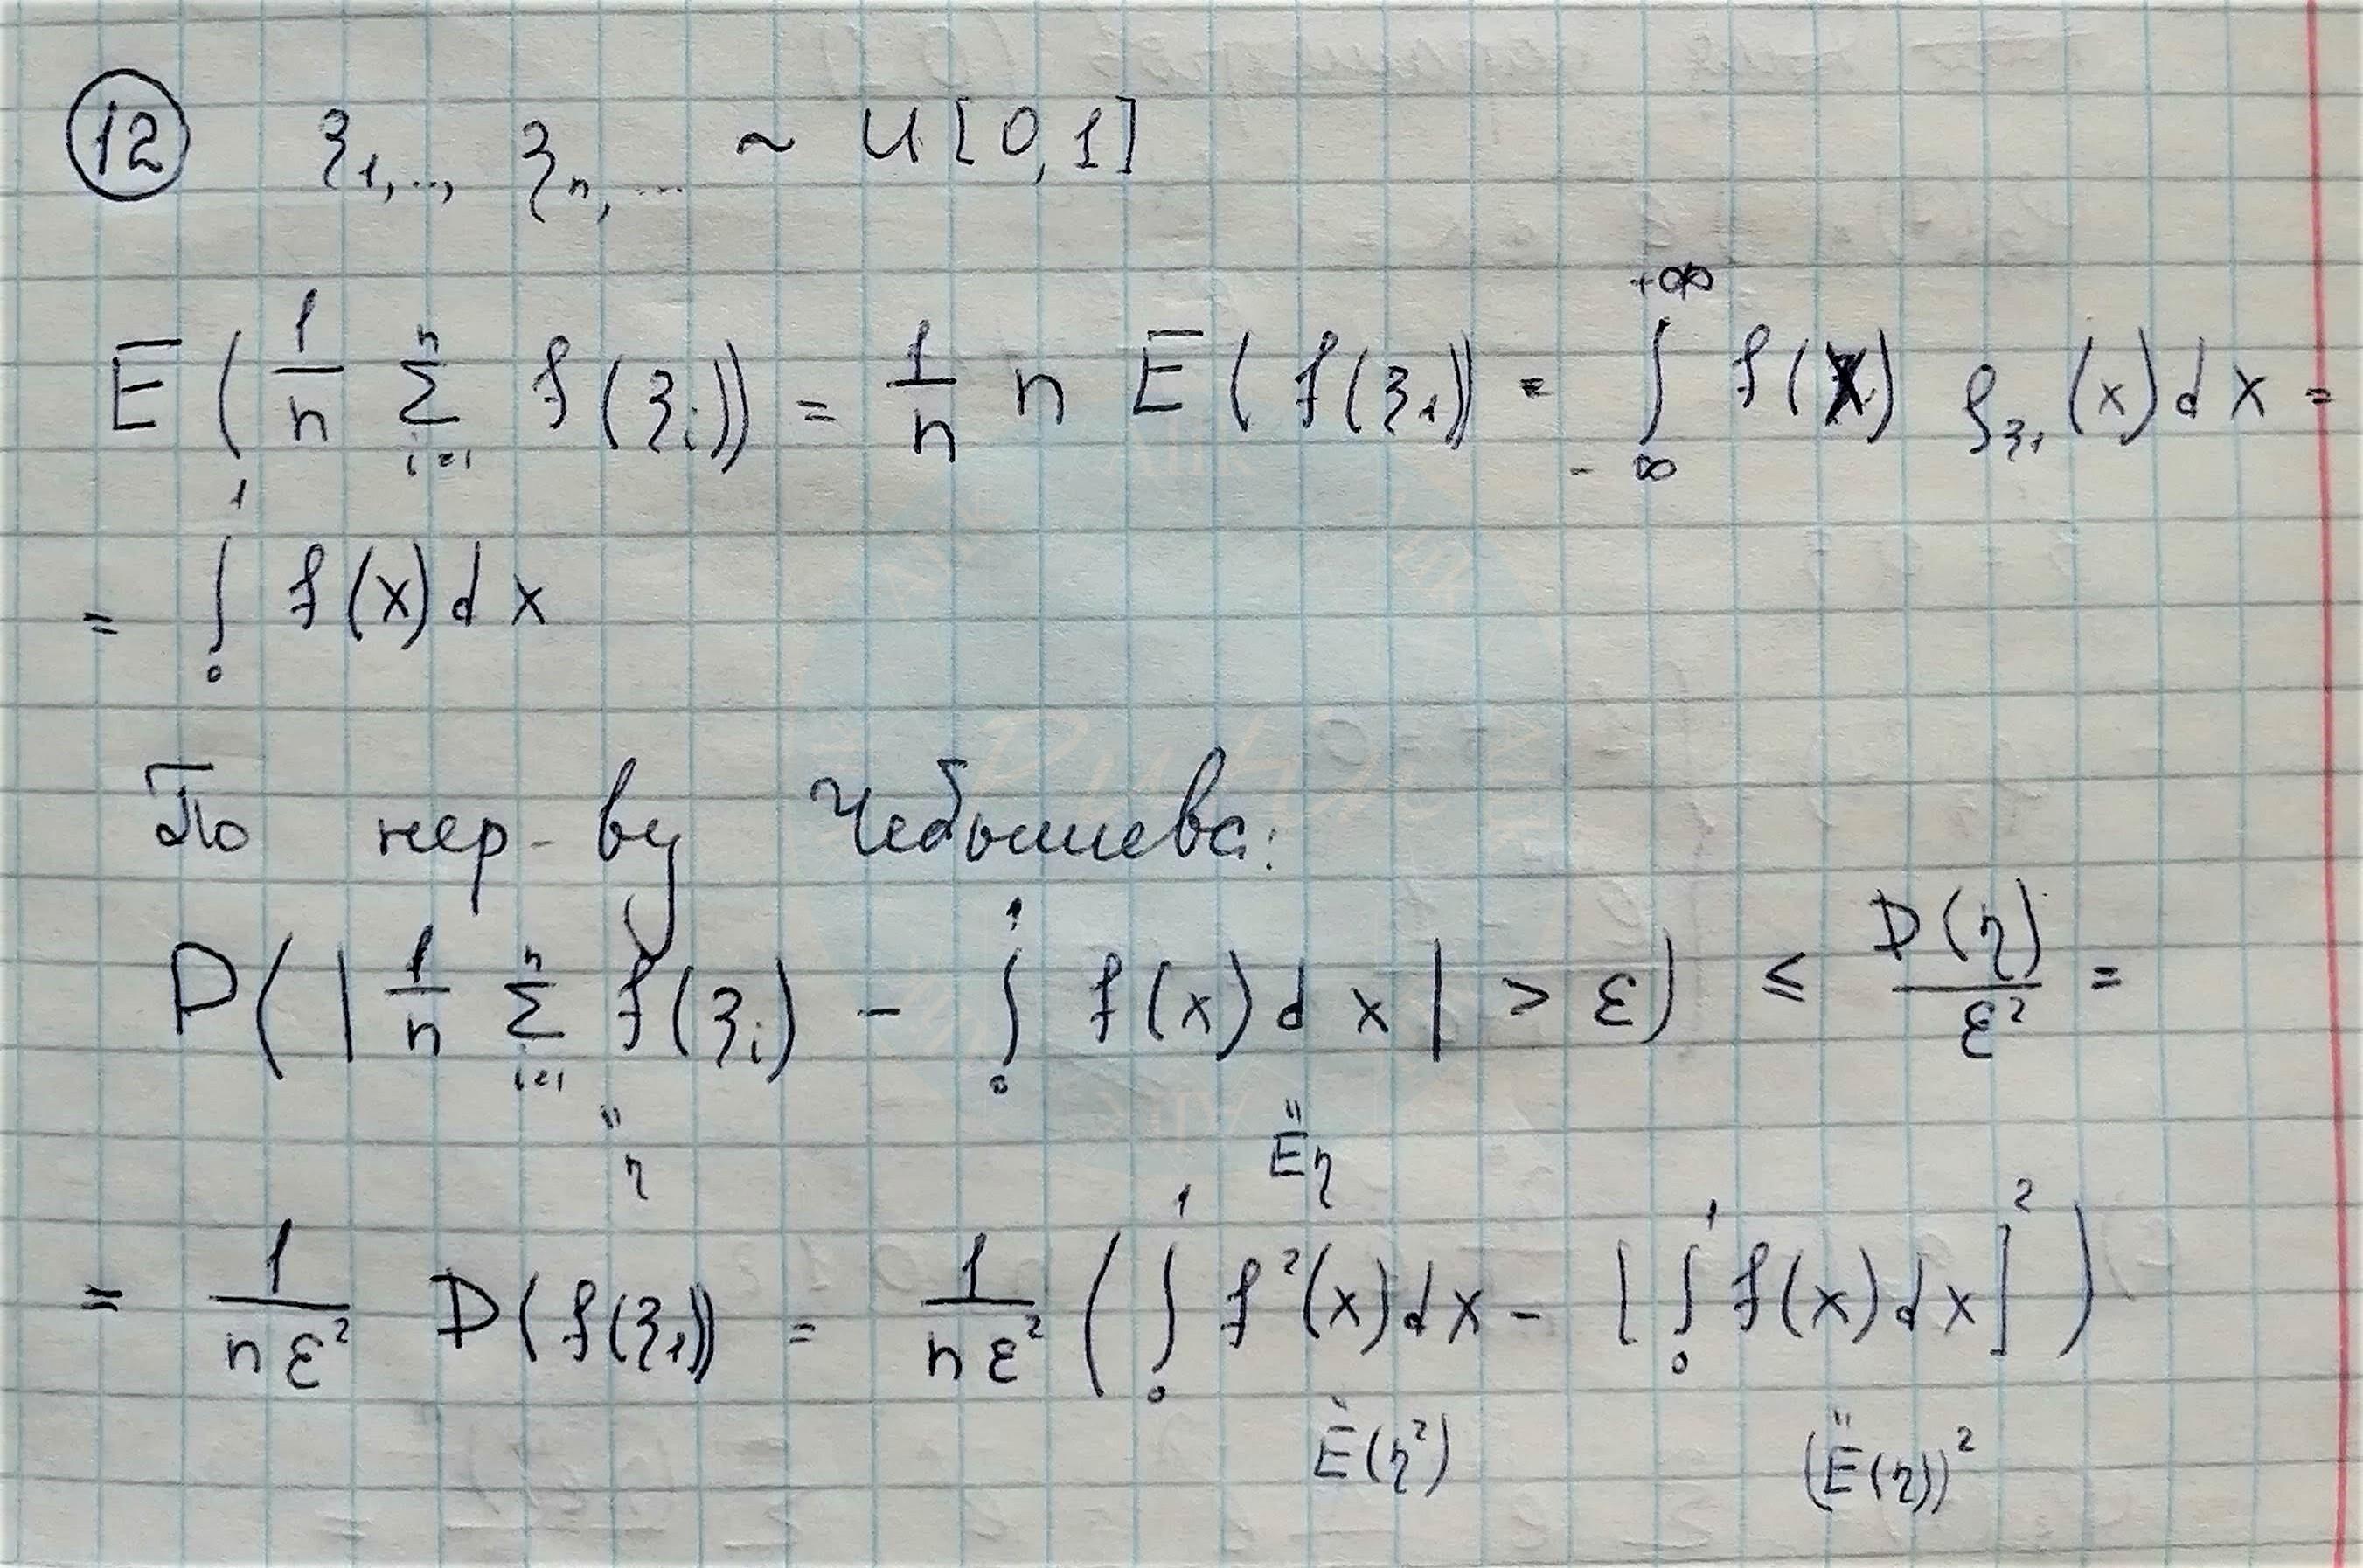 12 ξ₁,.., ξₙ, ... ~ U[0,1]
E(1/n Σᵢ₌₁ⁿ f(ξᵢ)) = 1/n n E(f(ξ₁)) = ∫₋∞⁺∞ f(x) ρ_ξ₁(x)dx =
= ∫₀¹ f(x)dx
По нер-ву Чебышева:
P(|1/n Σᵢ₌₁ⁿ f(ξᵢ) - ∫₀¹ f(x)dx| > ε) ≤ D(η)/ε² =
" η " Eη
= 1/nε² D(f(ξ₁)) = 1/nε² (∫₀¹ f²(x)dx - [∫₀¹ f(x)dx]²)
" E(η²) " (E(η))²